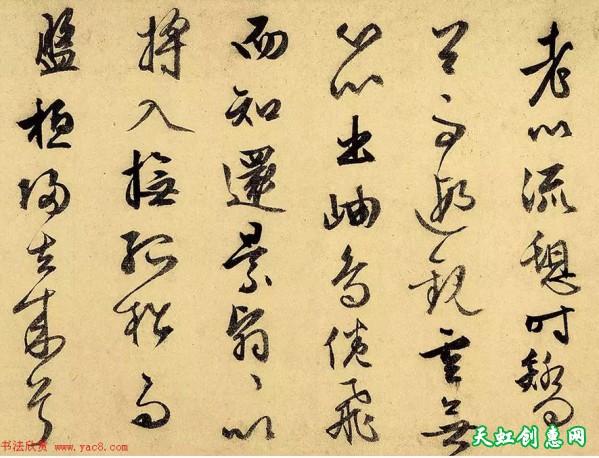 老以流憩時矯
首而遐觀雲無
心以出岫鳥倦飛
而知還景翳〻以
將入撫孤松而
盤桓歸去來兮
书法欣赏 www.yac8.com
天虹创意网